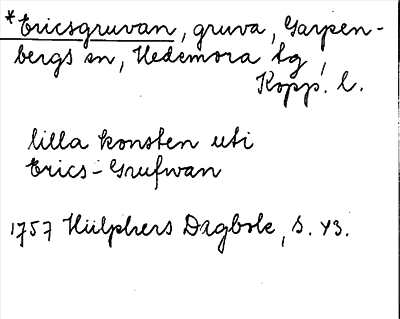 *Ericsgruvan, gruva, Garpen-
bergs sn, Hedemora tg,
Kopp. l.
lilla konsten uti
Erics-Grufwan
1757 Hülphers Dagbok, s. 43.